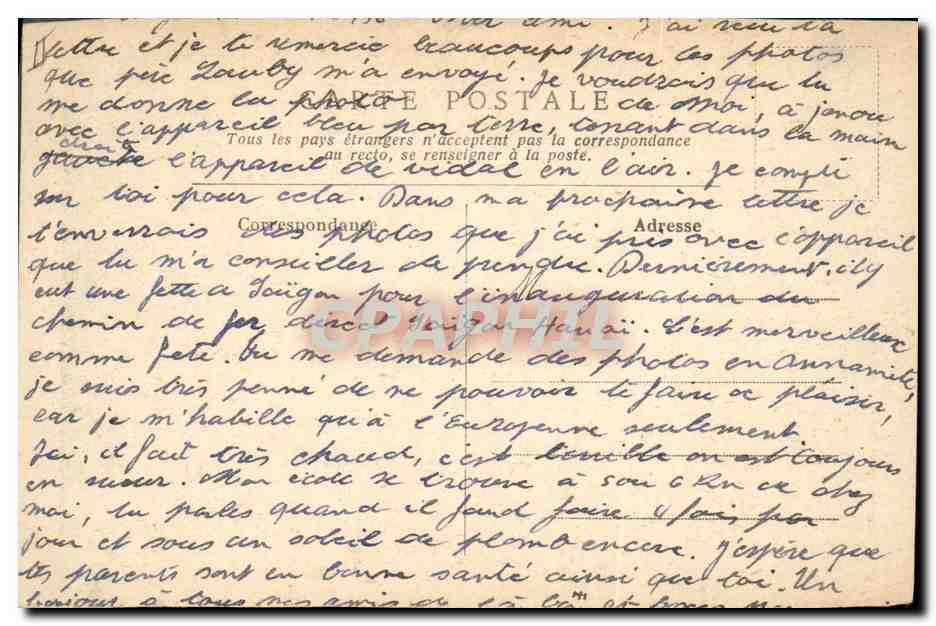 ami. J'ai reçu ta
lettre et je te remercie beaucoups pour les photos
que père Lauby m'a envoyé. Je voudrais que tu
me donne la photo de moi, à janou
CARTE POSTALE
avec l'appareil bleu par terre, tenant dans la main
Tous les pays étrangers n'acceptent pas la correspondance
au recto, se renseigner à la poste.
droite
gauche l'appareil de vidal en l'air. Je compte
sur toi pour cela. Dans ma prochaine lettre je
Correspondance
Adresse
t'enverrais des photos que j'ai pris avec l'appareil
que tu m'a conseiller de prendre. Dernièrement, il y
eut une fette a Saïgon pour l'inauguration du
chemin de fer direct Saïgon Hanoï. C'est merveilleux
CPAPHIL
comme fete. Tu me demande des photos en Annamite,
je suis très penné de ne pouvoir te faire ce plaisir,
car je m'habille qu'à l'Européenne seulement
Ici, il fait très chaud, c'est terrible on est toujours
en sueur. Mon école se trouve à 6 Km de chez
moi, tu parles quand il faud faire 4 fois par
jour et sous un soleil de plomb encore. J'espère que
tes parents sont en bonne santé ainsi que toi. Un
bonjour à tous nos amis de là bas et